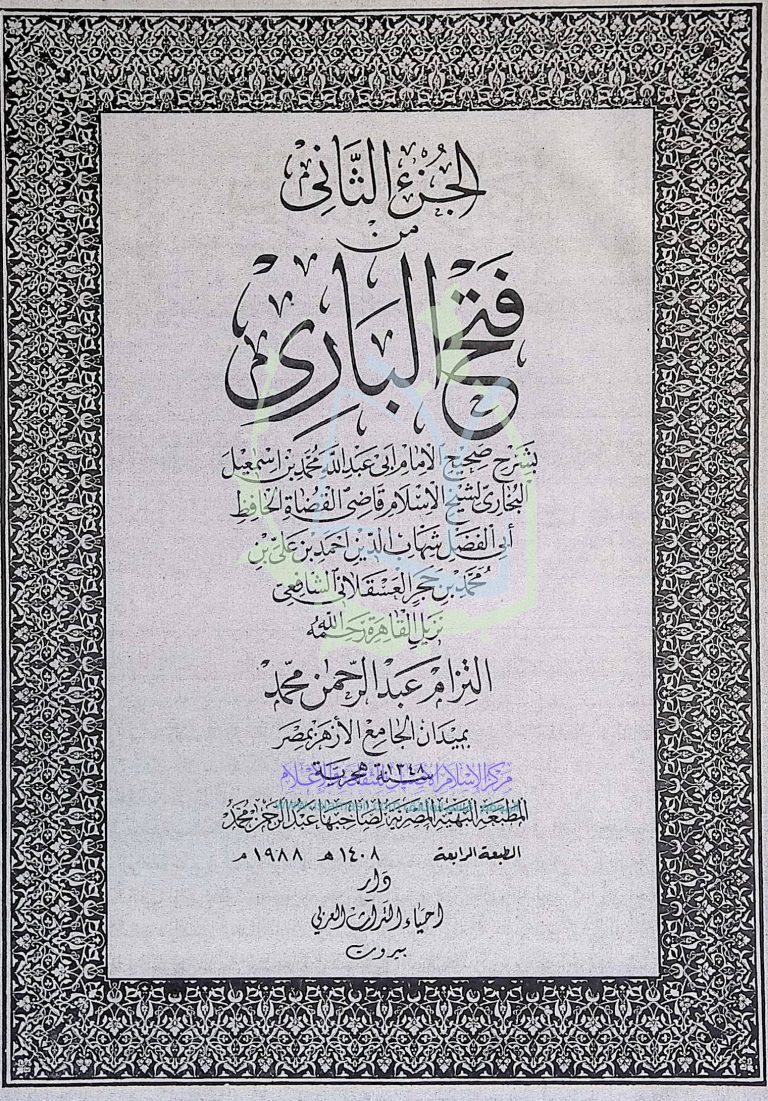 الجزء الثاني
من
فتح الباري
بشرح صحيح الإمام أبي عبد الله محمد بن اسمعيل
البخاري لشيخ الإسلام قاضي القضاة الحافظ
أبي الفضل شهاب الدين أحمد بن علي بن
محمد بن حجر العسقلاني الشافعي
نزيل القاهرة رحمه الله
التزام عبد الرحمن محمد
بميدان الجامع الأزهر بمصر
سنة ١٣٤٨ هجرية
المطبعة البهية المصرية لصاحبها عبد الرحمن محمد
الطبعة الرابعة ١٤٠٨ هـ ١٩٨٨ م
دار
احياء التراث العربي
بيروت